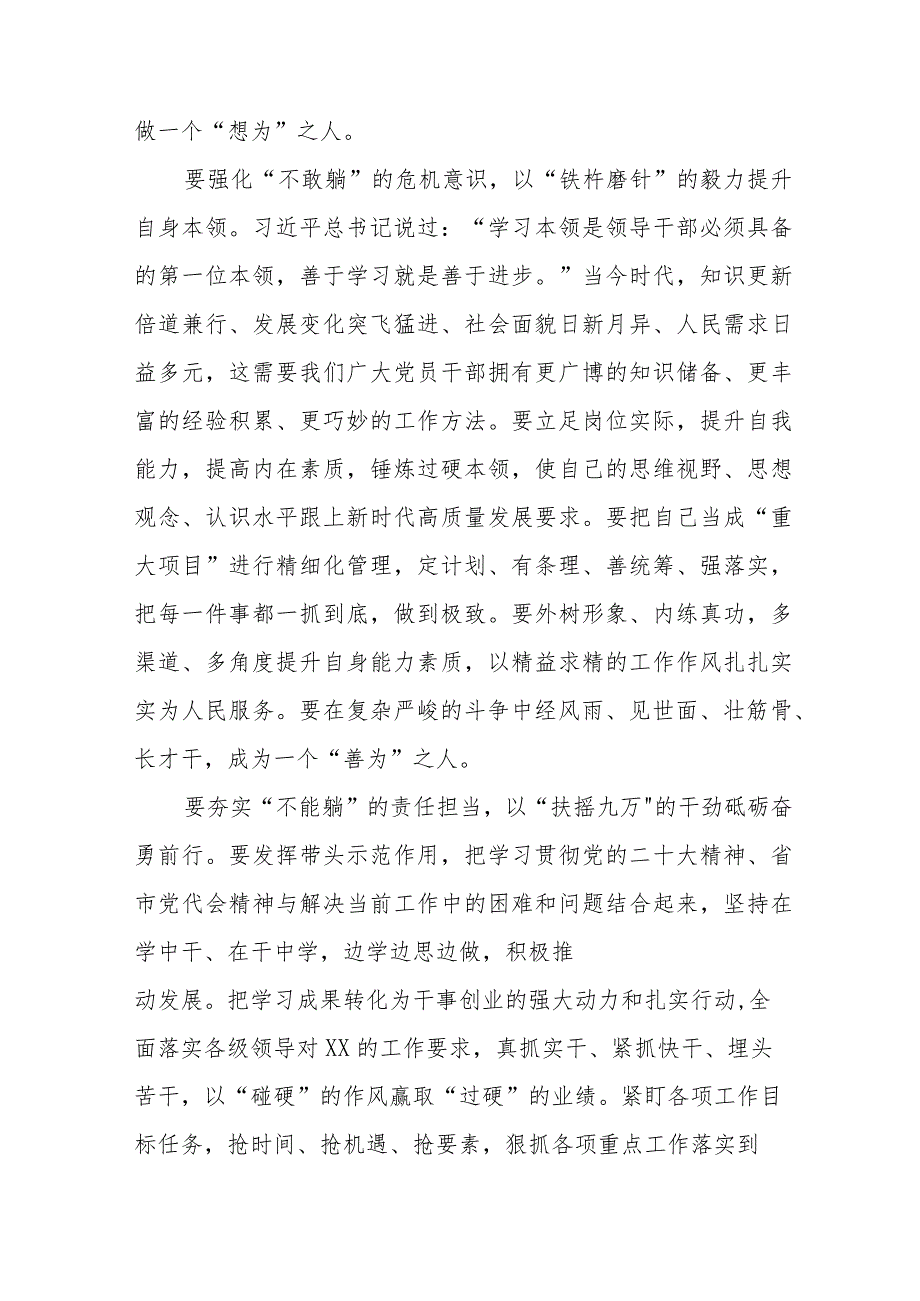 做一个“想为”之人。
要强化“不敢躺”的危机意识，以“铁杵磨针”的毅力提升
自身本领。习近平总书记说过：“学习本领是领导干部必须具备
的第一位本领，善于学习就是善于进步。”当今时代，知识更新
倍道兼行、发展变化突飞猛进、社会面貌日新月异、人民需求日
益多元，这需要我们广大党员干部拥有更广博的知识储备、更丰
富的经验积累、更巧妙的工作方法。要立足岗位实际，提升自我
能力，提高内在素质，锤炼过硬本领，使自己的思维视野、思想
观念、认识水平跟上新时代高质量发展要求。要把自己当成“重
大项目”进行精细化管理，定计划、有条理、善统筹、强落实，
把每一件事都一抓到底，做到极致。要外树形象、内练真功，多
渠道、多角度提升自身能力素质，以精益求精的工作作风扎扎实
实为人民服务。要在复杂严峻的斗争中经风雨、见世面、壮筋骨、
长才干，成为一个“善为”之人。
要夯实“不能躺”的责任担当，以“扶摇九万"的干劲砥砺奋
勇前行。要发挥带头示范作用，把学习贯彻党的二十大精神、省
市党代会精神与解决当前工作中的困难和问题结合起来，坚持在
学中干、在干中学，边学边思边做，积极推
动发展。把学习成果转化为干事创业的强大动力和扎实行动,全
面落实各级领导对XX的工作要求，真抓实干、紧抓快干、埋头
苦干，以“碰硬”的作风赢取“过硬”的业绩。紧盯各项工作目
标任务，抢时间、抢机遇、抢要素，狠抓各项重点工作落实到